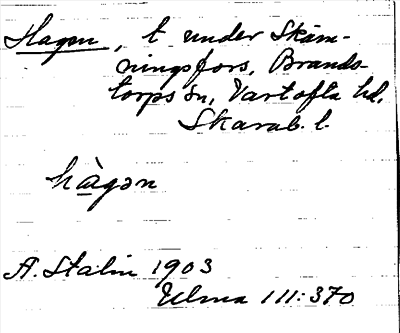 Hagen, t. under Skäm-
ningsfors, Brands-
torps sn, Vartofta hd,
Skarab. l.
hàgən
A. Stalin 1903
Ulma 111:370